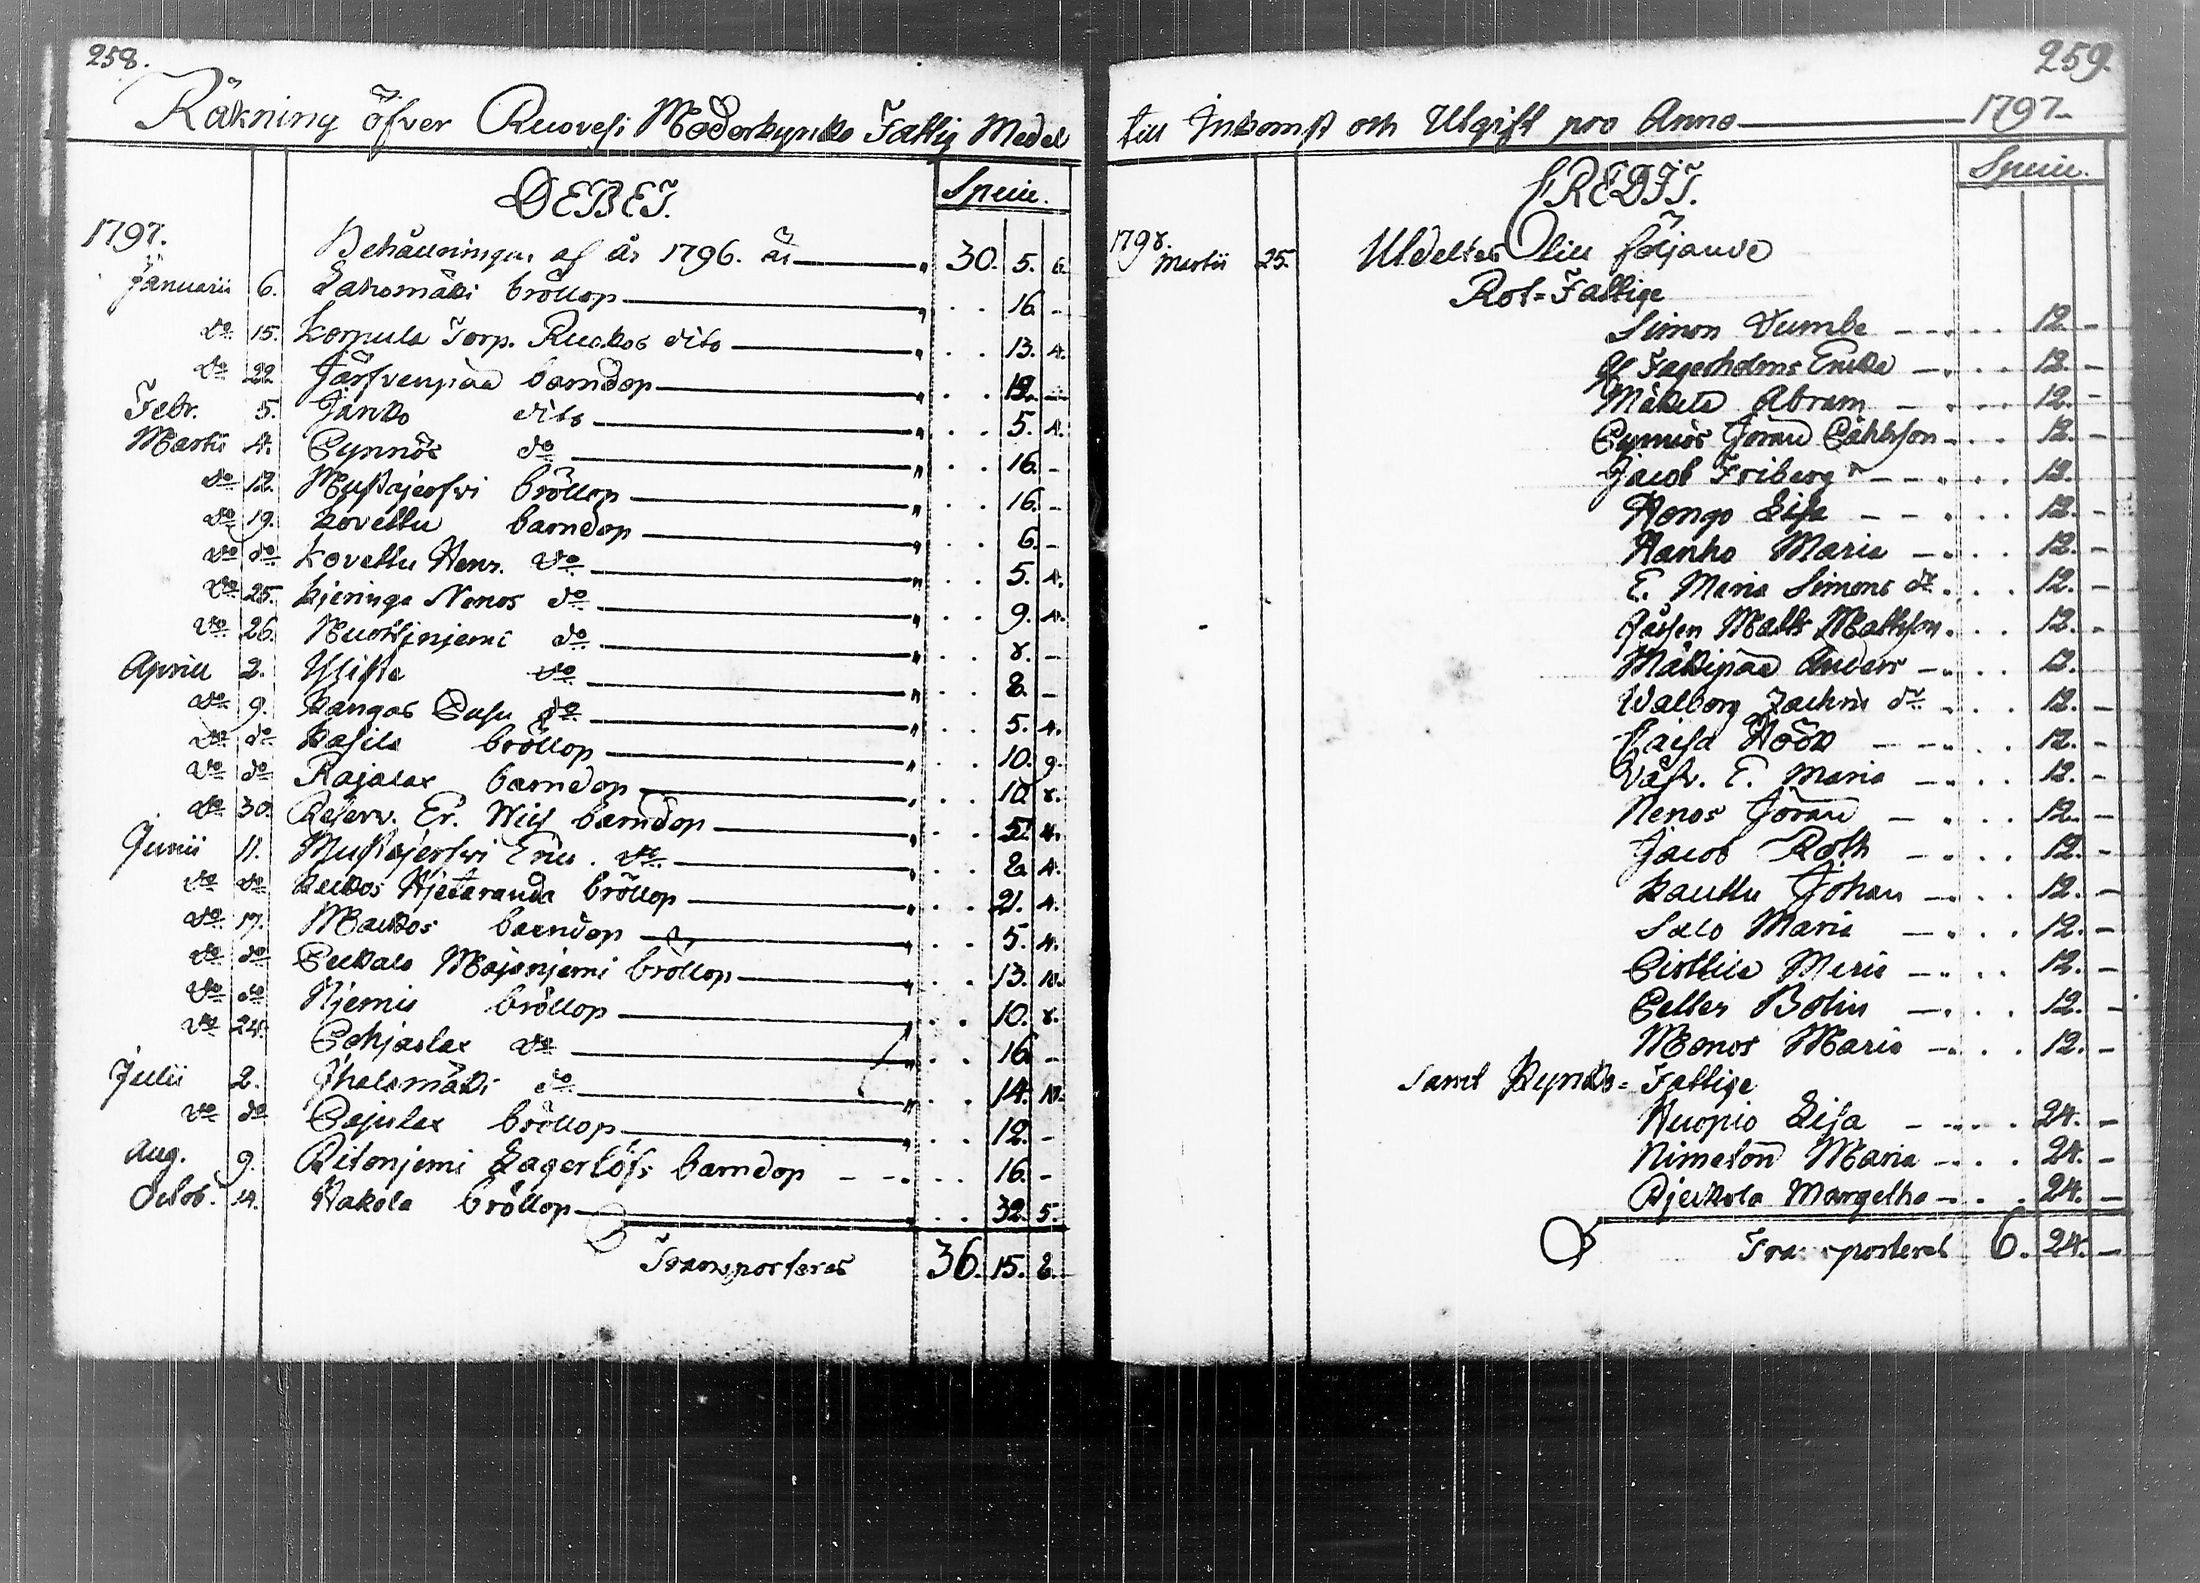 258.
Räkning öfver Ruovesi Moderkyrko Fattig Medel
DEBET. Specie.
1797.
Behållningen af år 1796. är 30. 5. 6.
Januarii 6. Lahomäki bröllop 16. -
do 15. Korpula Torp. Ruokos dito 13. 4.
do 22 Järfvenpää barndop 12. -
Febr. 5. Janko dito 5. 4.
Martii 4. Pynnös do 16. -
do 12. Mustajerfvi bröllop 16. -
do 19. Kovettu barndop 6. -
do do Kovettu Henr. do 5. 4.
do 25. Kjeringe Nenos do 9. 4.
do 26. Muottinjemi do 8. -
Aprill 2. do 8. -
do 9. Kangas do 5. 4.
do do Kasila bröllop 10. 9.
do do Rajalax barndop 10. 8.
do 30. Reserv. Er. barndop 5. 4.
Junii 11. Mustajerfvi Eric. do 2. 4.
do do bröllop 21. 4.
do 17. Maukos barndop 5. 4.
do do Pekkala Majanjemi bröllop 13. 10.
do do Njemis bröllop 10. 8.
do 24. Pohjaslax do 16. -
Julii 2. Ihalamäki do 14. 10.
do do Pajulax bröllop 12. -
Aug. 9. Ritonjemi Lagerlöfs barndop 16. -
Octob. 14. Hakola bröllop 32. 5.
Transporteres 36. 15. 2.
259.
till Inkomst och Utgift pro Anno 1797
CREDIT. Specie.
1798. Martii 25. Utdeltes till följande
Rot-Fattige
Simon Dumbe 12. -
Fagerholms Enka 12. -
Mäkele Abram 12. -
Pynnös Jöran 12. -
Jacob Friberg 12. -
Hongo Lisa 12. -
Hanho Maria 12. -
E. Maria Simons dr 12. -
Matts Mattsson 12. -
Mäkipää Anders 12. -
Walborg Zachris dr 12. -
Caisa Höök 12. -
E. Maria 12. -
Nenos Jöran 12. -
Jacob Roth 12. -
Kauttu Johan 12. -
Salo Maria 12. -
Maria 12. -
Petter Bolin 12. -
Monos Maria 12. -
Samt Kyrko-Fattige
Huopio Lisa 24. -
Maria 24. -
Margetha 24. -
Transporteres 6. 24. -